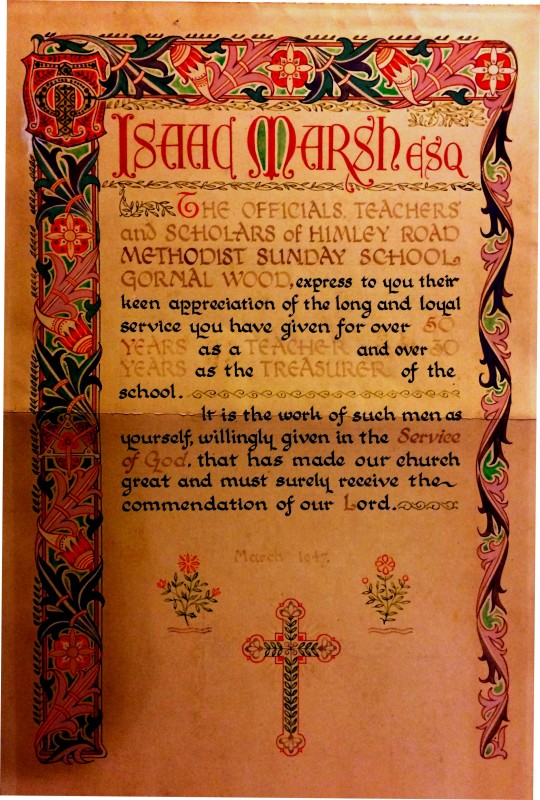 ISAAC MARSH ESQ
THE OFFICIALS, TEACHERS
and SCHOLARS of HIMLEY ROAD
METHODIST SUNDAY SCHOOL
GORNAL WOOD, express to you their
keen appreciation of the long and loyal
service you have given for over 50
YEARS as a TEACHER and over 30
YEARS as the TREASURER of the
school.
It is the work of such men as
yourself, willingly given in the Service
of God, that has made our church
great and must surely receive the
commendation of our Lord.
March 1947.